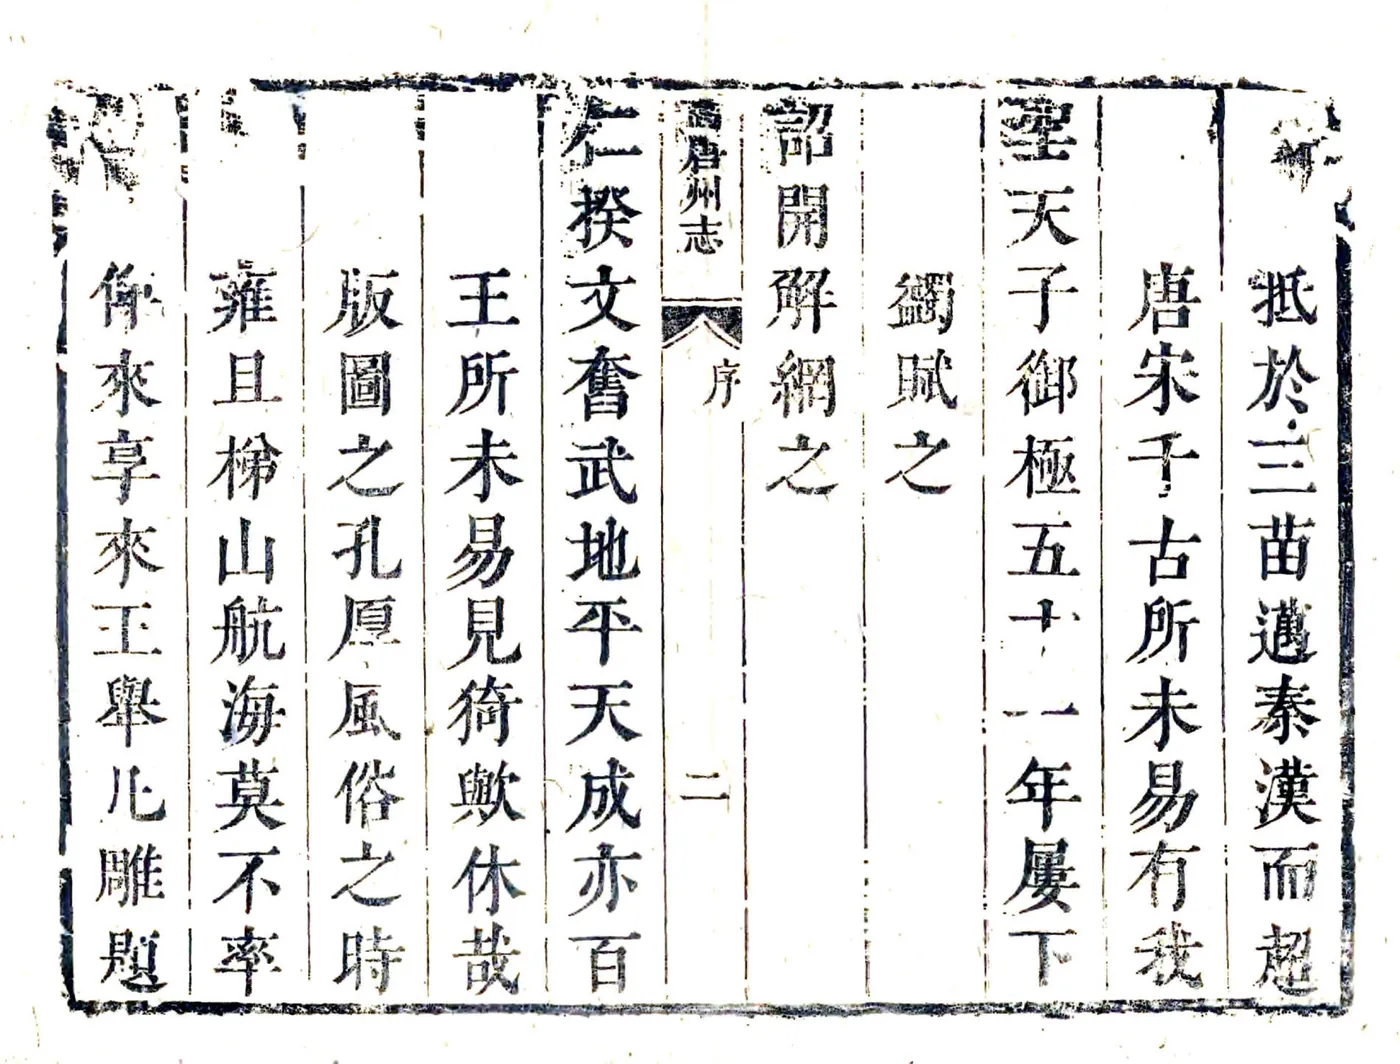 抵於三苗邁秦漢而超
唐宋千古所未易有我
聖天子御極五十一年屢下
蠲賦之
詔開解網之
高唐州志
序
二
仁揆文奮武地平天成亦百
王所未易見猗歟休哉
版圖之孔厚風俗之時
雍且梯山航海莫不率
俾來享來王舉凡雕題